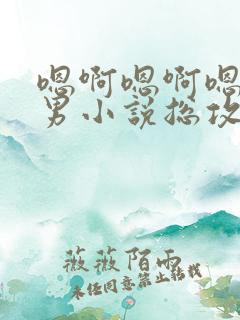 嗯啊嗯啊嗯
男小说总攻
薇薇陌雨
未经同意禁止转载